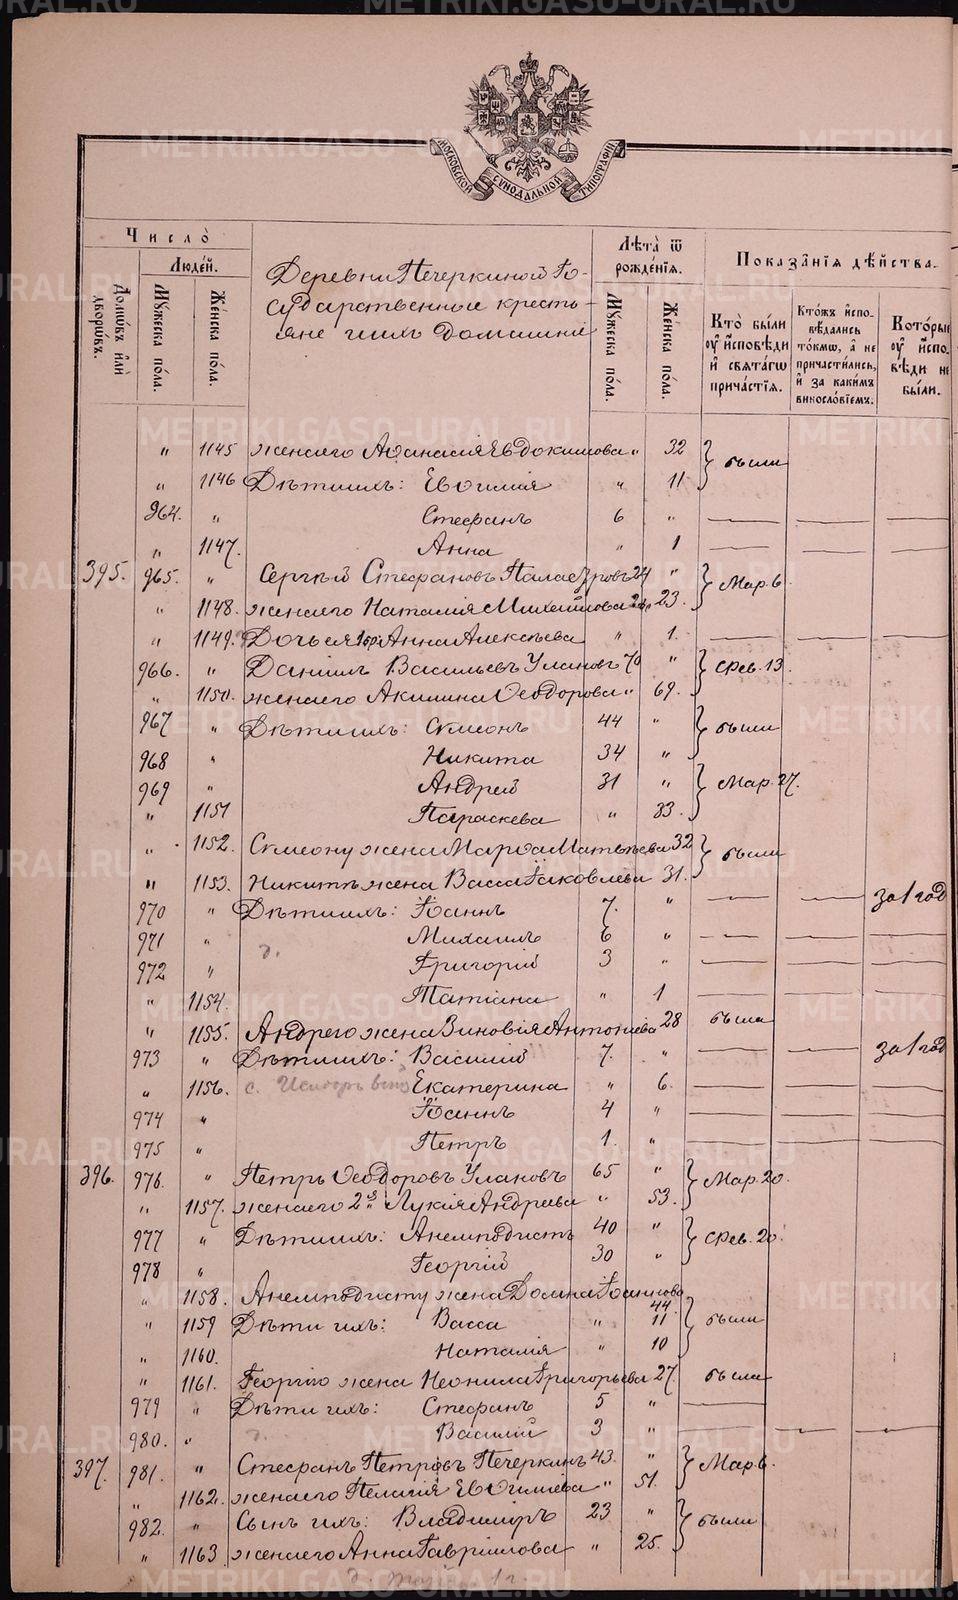 МОСКОВСКОЙ СУНОДАЛЬНОЙ ТИПОГРАФІИ
Число̀
Людей.
Домѡвъ и҆лѝ дворѡвъ.
Мꙋжеска по́ла.
Же́нска по́ла.
Деревни Печеркиной Го-
сударственные кресть-
яне и ихъ домашніе
Лѣта̀ ѿ рожде́нїѧ.
Мꙋ́жеска по́ла.
Же́нска по́ла.
Показа̑нїѧ дѣ́йства.
Кто̀ бы́ли ᲂу҆ и҆́сповѣди и҆ свѧта́гѡ прича́стїѧ.
Кто́жъ и҆спо- вѣ́дались то́кмѡ, а҆ не причасти́лись, и҆ за каки́мъ виносло́вїемъ.
Кото́рые ᲂу҆ и҆спо- вѣди не бы́ли.
" 1145 жена его Аѳанасія Евдокимова " 32 были
" 1146 Дѣти ихъ: Евѳимія " 11
964. " Стефанъ 6 "
" 1147. Анна " 1
395. 965. " Сергѣй Стефановъ Палаузровъ 24 " Мар. 6
" 1148. жена его Наталія Михеилова 2 бр 23.
" 1149. Дочь ея 1 бр. Анна Алексѣева " 1.
966. " Даніилъ Васильевъ Улановъ 70 " Фев. 13.
" 1150. жена его Акилина Ѳеодорова " 69.
967 " Дѣти ихъ: Симеонъ 44 " были
968 " Никита 34 "
969 " Андрей 31 " Мар. 27.
" 1151 Параскева " 33.
" 1152. Симеону жена Марѳа Матвѣева 32 были
" 1153. Никитѣ жена Васса Іаковлева 31.
970 " Дѣти ихъ: Іоаннъ 7. " за 1 год
971 " Михаилъ 6 "
972 " Григорій 3 "
" 1154. Татіана " 1
" 1155. Андрею жена Зиновія Антоніева 28 была
973 " Дѣти ихъ: Василій 7. " за 1 год
" 1156. Екатерина " 6.
974 " Іоаннъ 4 "
975 " Петръ 1. "
396. 976. " Петръ Ѳеодоровъ Улановъ 65 " Мар. 20.
" 1157. жена его 2я Лукія Андреева " 53.
977 " Дѣти ихъ: Анемподистъ 40 " Фев. 20.
978 " Георгій 30 "
" 1158. Анемподисту жена Домна Іоаннова 44 были
" 1159 Дѣти ихъ: Васса " 11
" 1160. Наталія " 10
" 1161. Георгію жена Неонила Григорьева 27. была
979 " Дѣти ихъ: Стефанъ 5 "
980. " Василій 3 "
397. 981. " Стефанъ Петровъ Печеркинъ 43. " Мар. 6.
" 1162. жена его Пелагія Евѳиміева " 51.
982. " Сынъ ихъ: Владиміръ 23 " были
" 1163 жена его Анна Гавріилова " 25.
METRIKI.GASO-URAL.RU